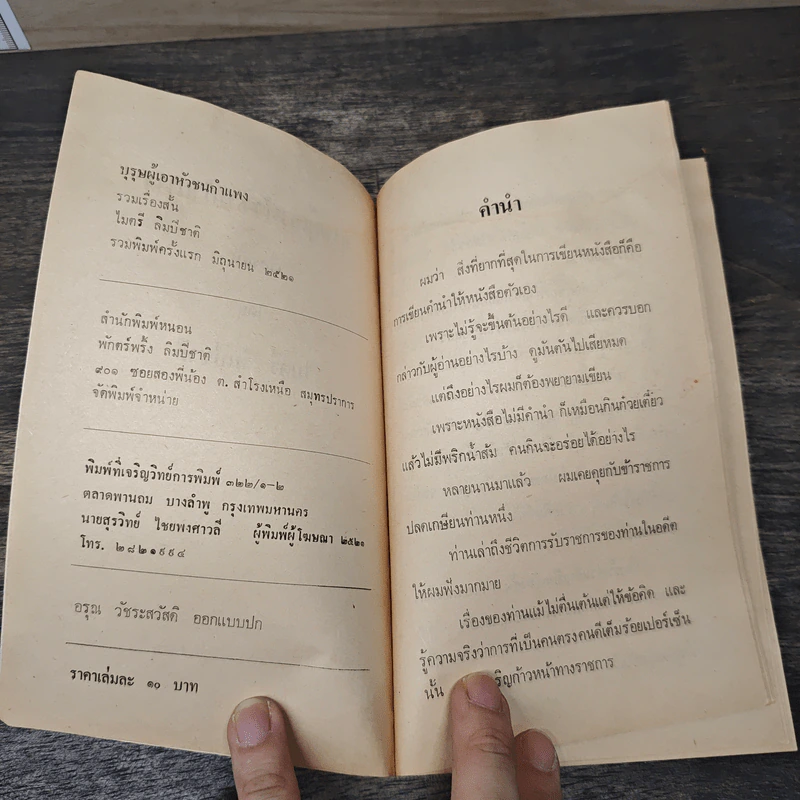 บุรุษผู้เอาหัวชนกำแพง
รวมเรื่องสั้น
ไมตรี ลิมปิชาติ
รวมพิมพ์ครั้งแรก มิถุนายน ๒๕๒๑
สำนักพิมพ์หนอน
พักตร์พริ้ง ลิมปิชาติ
๙๐๑ ซอยสองพี่น้อง ต. สำโรงเหนือ สมุทรปราการ
จัดพิมพ์จำหน่าย
พิมพ์ที่เจริญวิทย์การพิมพ์ ๓๒๒/๑-๒
ตลาดพานถม บางลำพู กรุงเทพมหานคร
นายสุรวิทย์ ไชยพงศาวลี ผู้พิมพ์ผู้โฆษณา ๒๕๒๑
โทร. ๒๘๒๑๙๙๔
อรุณ วัชระสวัสดิ์ ออกแบบปก
ราคาเล่มละ ๑๐ บาท
คำนำ
ผมว่า สิ่งที่ยากที่สุดในการเขียนหนังสือก็คือ
การเขียนคำนำให้หนังสือตัวเอง
เพราะไม่รู้จะขึ้นต้นอย่างไรดี และควรบอก
กล่าวกับผู้อ่านอย่างไรบ้าง ดูมันตันไปเสียหมด
แต่ถึงอย่างไรผมก็ต้องพยายามเขียน
เพราะหนังสือไม่มีคำนำ ก็เหมือนกินก๋วยเตี๋ยว
แล้วไม่มีพริกน้ำส้ม คนกินจะอร่อยได้อย่างไร
หลายนานมาแล้ว ผมเคยคุยกับข้าราชการ
ปลดเกษียนท่านหนึ่ง
ท่านเล่าถึงชีวิตการรับราชการของท่านในอดีต
ให้ผมฟังมากมาย
เรื่องของท่านแม้ไม่ตื่นเต้นแต่ให้ข้อคิด และ
รู้ความจริงว่าการที่เป็นคนตรงคนดีเต็มร้อยเปอร์เซ็น
นั้น ริญก้าวหน้าทางราชการ